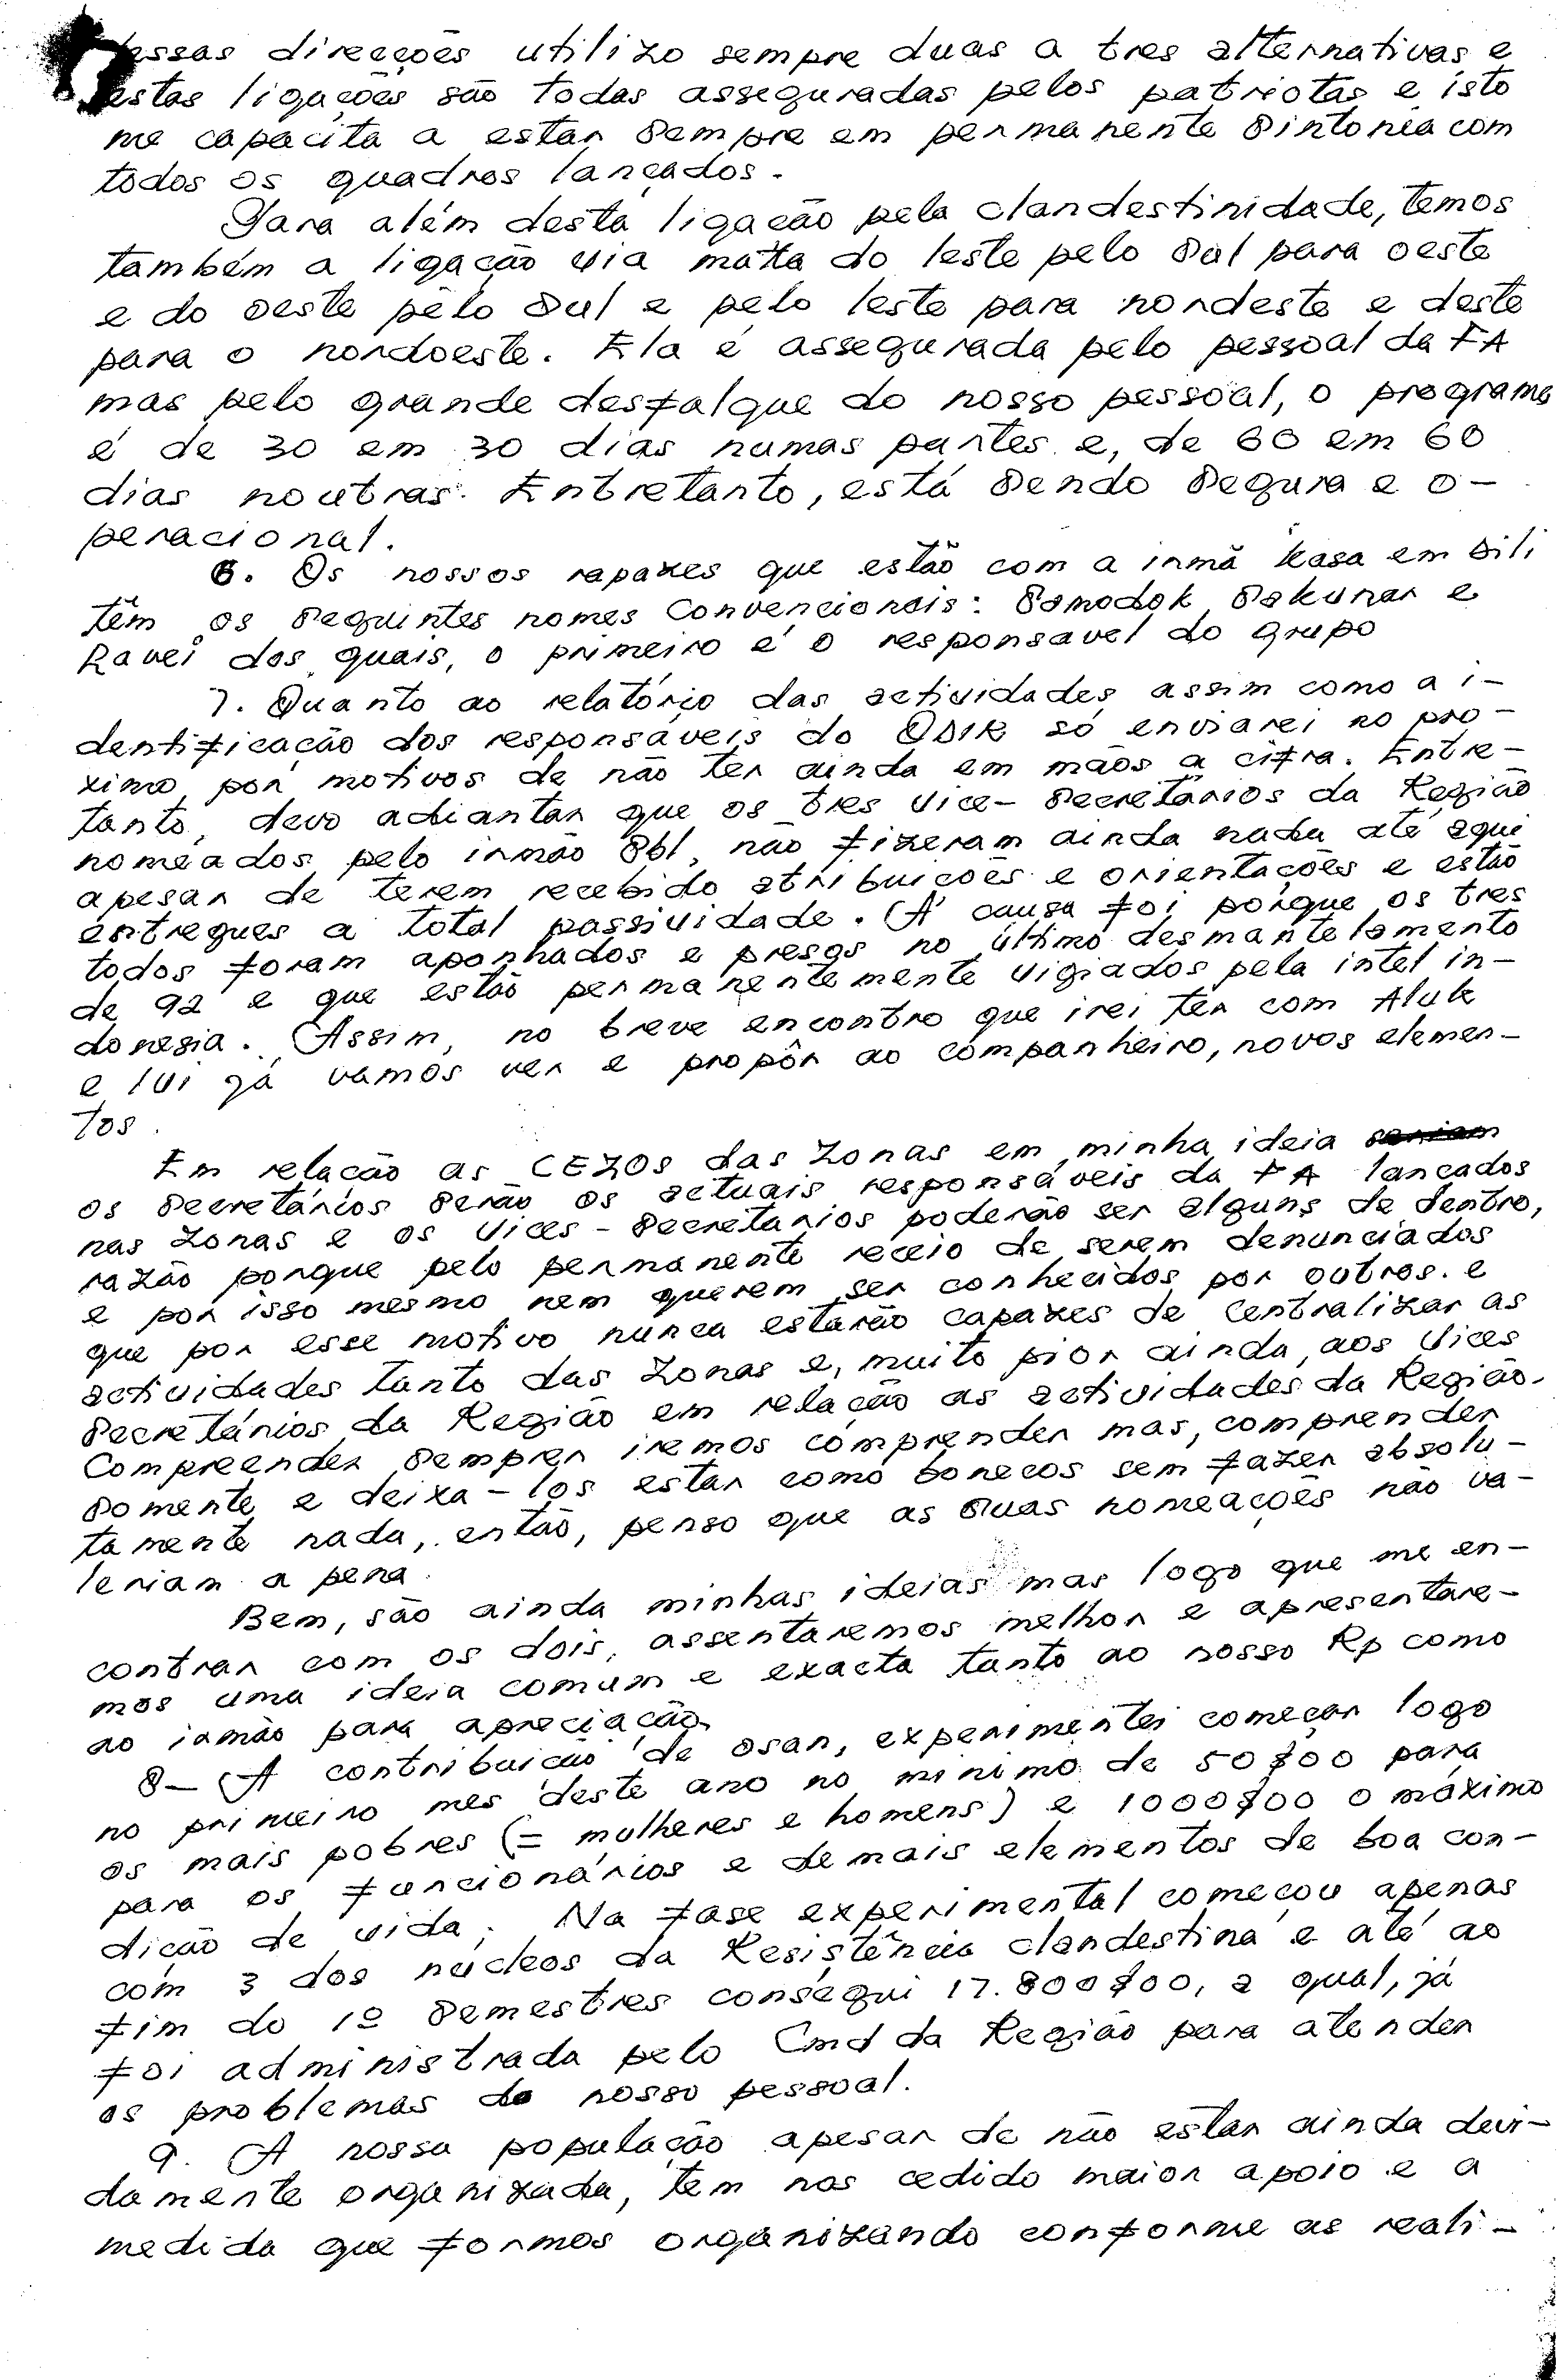 dessas direcções utilizo sempre duas a tres alternativas e
estas ligações são todas asseguradas pelos patriotas e isto
me capacita a estar sempre em permanente sintonia com
todos os quadros lançados.
Para além desta ligação pela clandestinidade, temos
também a ligação via mata do leste pelo sul para oeste
e do oeste pelo sul e pelo leste para nordeste e deste
para o nordoeste. Ela é assegurada pelo pessoal da FA
mas pelo grande desfalque do nosso pessoal, o programa
é de 30 em 30 dias numas partes e, de 60 em 60
dias noutras. Entretanto, está sendo segura e o-
peracional.
6. Os nossos rapazes que estão com a irmã Kasa em Dili
têm os seguintes nomes convencionais: Samodok, Sakunar e
Ravei dos quais, o primeiro é o responsavel do grupo
7. Quanto ao relatório das actividades assim como a i-
dentificação dos responsáveis do só enviarei no pro-
ximo por motivos de não ter ainda em mãos a cifra. Entre-
tanto, devo adiantar que os tres vice-secretários da Região
nomeados pelo irmão não fizeram ainda nada até aqui
apesar de terem recebido atribuicões e orientações e estão
entregues a total passividade. A causa foi porque os tres
todos foram aponhados e presos no último desmantelamento
de 92 e que estão permanentemente vigiados pela intel in-
donesia. Assim, no breve encontro que irei ter com Aluk
e lui já vamos ver e propôr ao companheiro, novos elemen-
tos.
Em relação as CEZOS das zonas em minha ideia
os secretários serão os actuais responsáveis da FA lancados
nas zonas e os vices-secretarios poderão ser alguns de dentro,
razão porque pelo permanente receio de serem denunciados
e por isso mesmo nem querem ser conhecidos por outros e
que por esse motivo nunca estarão capazes de centralizar as
actividades tanto das zonas e, muito pior ainda, aos vices
secretários da Região em relação as actividades da Região.
Compreender sempre iremos comprender mas, comprender
somente e deixa-los estar como bonecos sem fazer absolu-
tamente nada, então, penso que as suas nomeações não va-
leriam a pena.
Bem, são ainda minhas ideias mas logo que me en-
contrar com os dois, assentaremos melhor e apresentare-
mos uma ideia comum e exacta tanto ao nosso Rp como
ao irmão para apreciação.
8- A contribuicão de osan, experimentei começar logo
no primeiro mes deste ano no minimo de 50$00 para
os mais pobres (= mulheres e homens) e 1000$00 o máximo
para os funcionários e demais elementos de boa con-
dicão de vida. Na fase experimental começou apenas
com 3 dos núcleos da Resistência clandestina e até ao
fim do 1º semestres consegui 17.800$00, a qual, já
foi administrada pelo Cmd da Região para atender
os problemas do nosso pessoal.
9. A nossa população apesar de não estar ainda devi-
damente organizada, tem nos cedido maior apoio e a
medida que formos organizando conforme as reali-